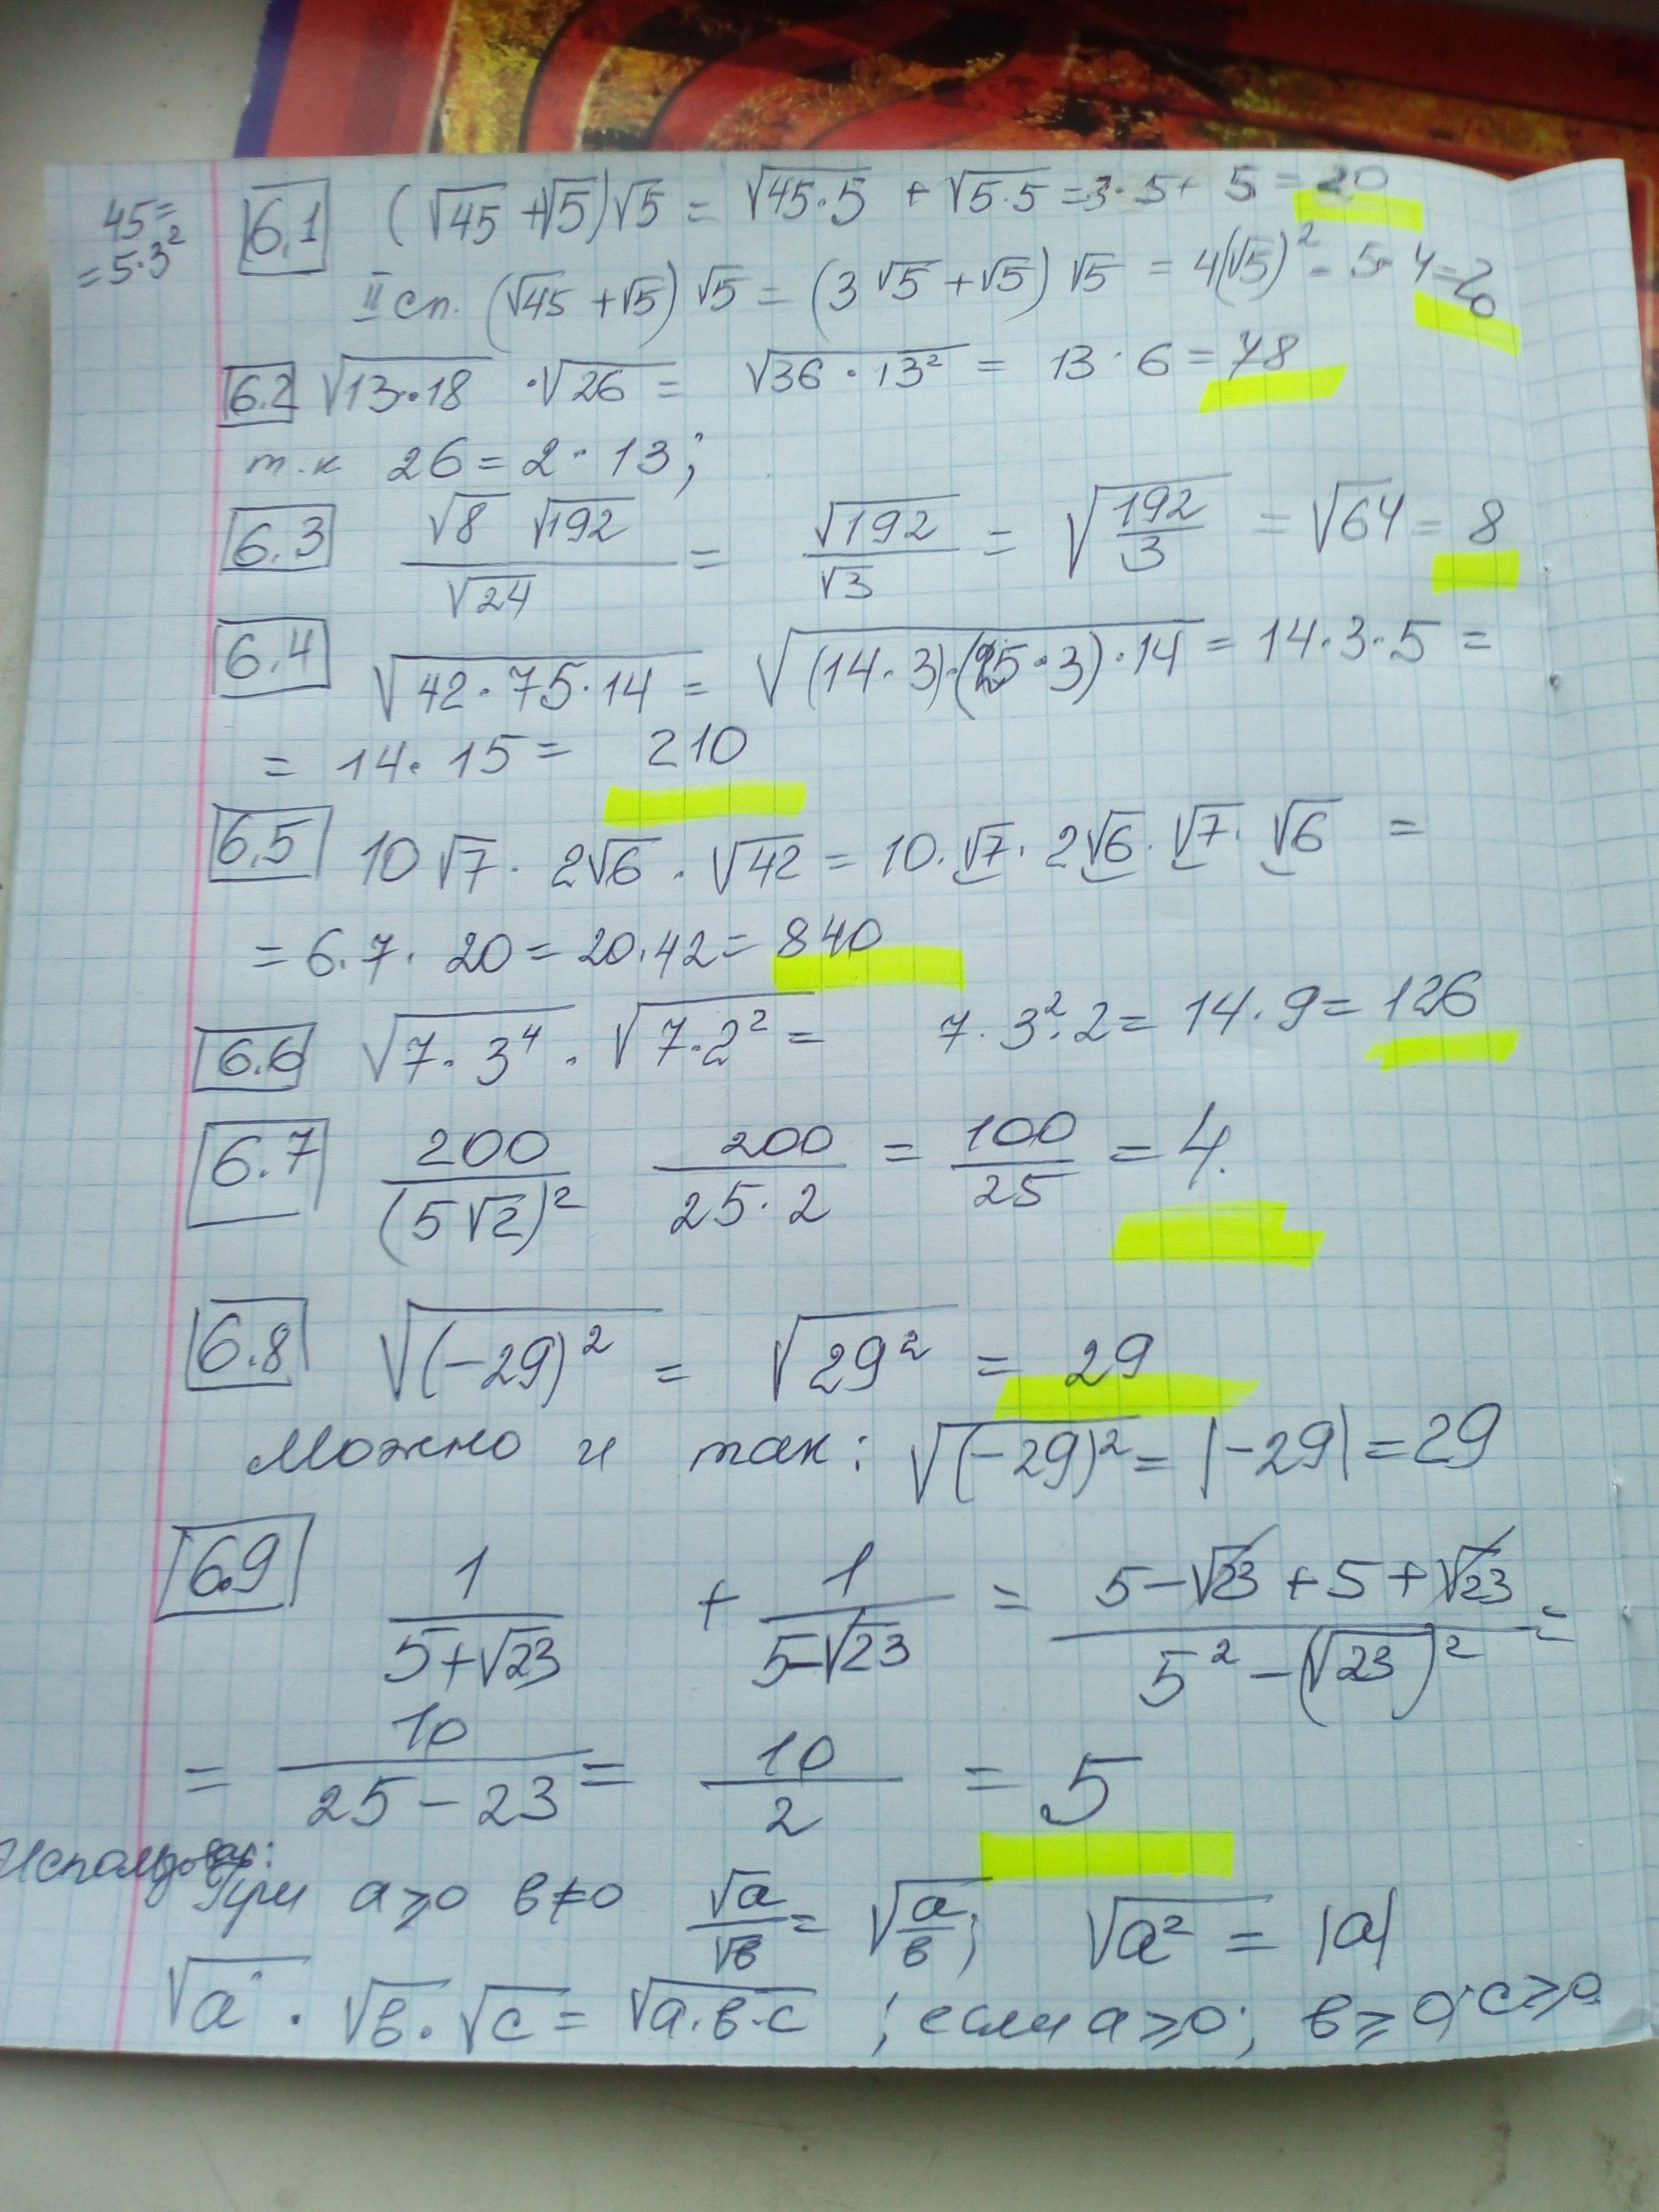 45=
=5·3²
6.1 (√45+√5)√5 = √45·5 + √5·5 = 3·5 + 5 = 20
II сп. (√45+√5)√5 = (3√5+√5)√5 = 4(√5)² = 5·4=20
6.2 √13·18 · √26 = √36·13² = 13·6 = 78
т.к 26 = 2·13;
6.3 √8 √192 / √24 = √192 / √3 = √(192/3) = √64 = 8
6.4 √42·75·14 = √(14·3)·(25·3)·14 = 14·3·5 =
= 14·15 = 210
6.5 10√7 · 2√6 · √42 = 10·√7·2√6·√7·√6 =
= 6·7·20 = 20·42 = 840
6.6 √7·3⁴ · √7·2² = 7·3²·2 = 14·9 = 126
6.7 200/(5√2)² 200/(25·2) = 100/25 = 4.
6.8 √(-29)² = √29² = 29
Можно и так: √(-29)² = |-29| = 29
6.9 1/(5+√23) + 1/(5-√23) = (5-√23+5+√23)/(5²-(√23)²) =
= 10/(25-23) = 10/2 = 5
При a≥0 в≠0 √a/√в = √(a/в); √a² = |a|
√a · √в · √c = √a·в·c ; если a≥0; в≥0; c≥0